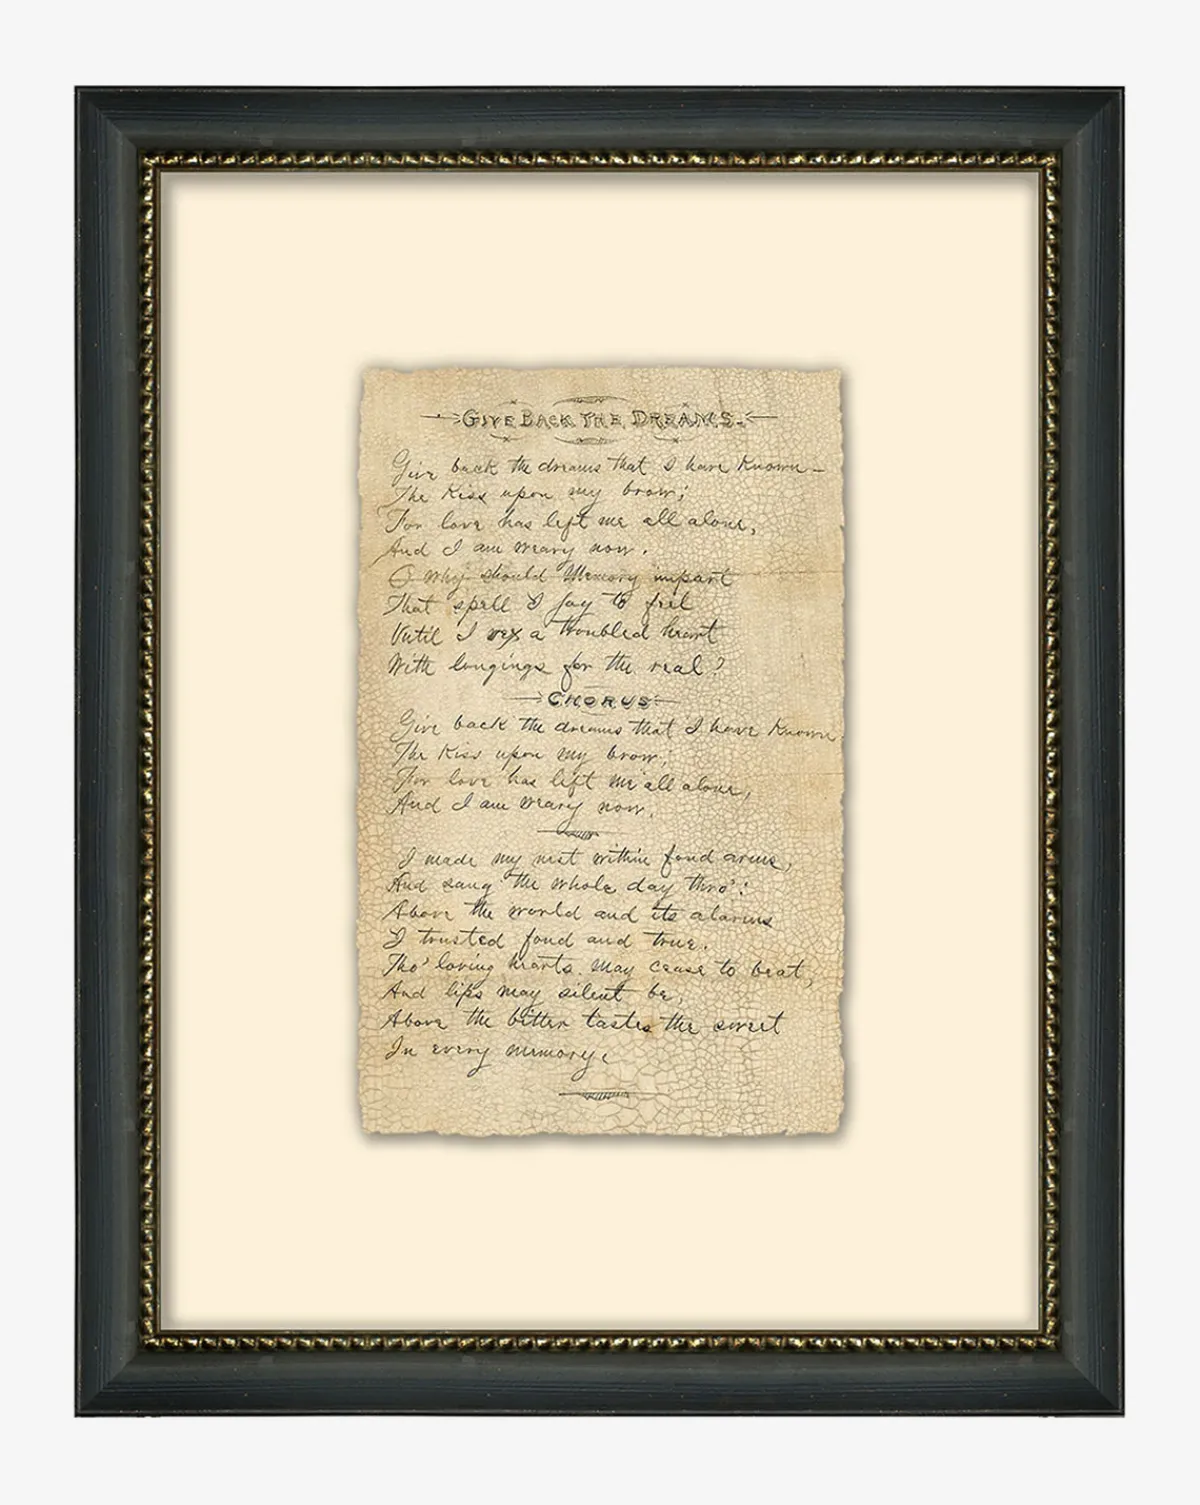 GIVE BACK THE DREAMS.
Give back the dreams that I have known—
The Kiss upon my brow;
For love has left me all alone,
And I am weary now.
O why should Memory impart
That spell I say to feel
Until I vex a troubled heart
With longings for the real?
CHORUS
Give back the dreams that I have known
The Kiss upon my brow;
For love has left me all alone,
And I am weary now.
I made my nest within fond arms,
And sang the whole day thro':
Above the world and its alarms
I trusted fond and true.
Tho' loving hearts may cease to beat,
And lips may silent be,
Above the bitter tastes the sweet
In every memory.